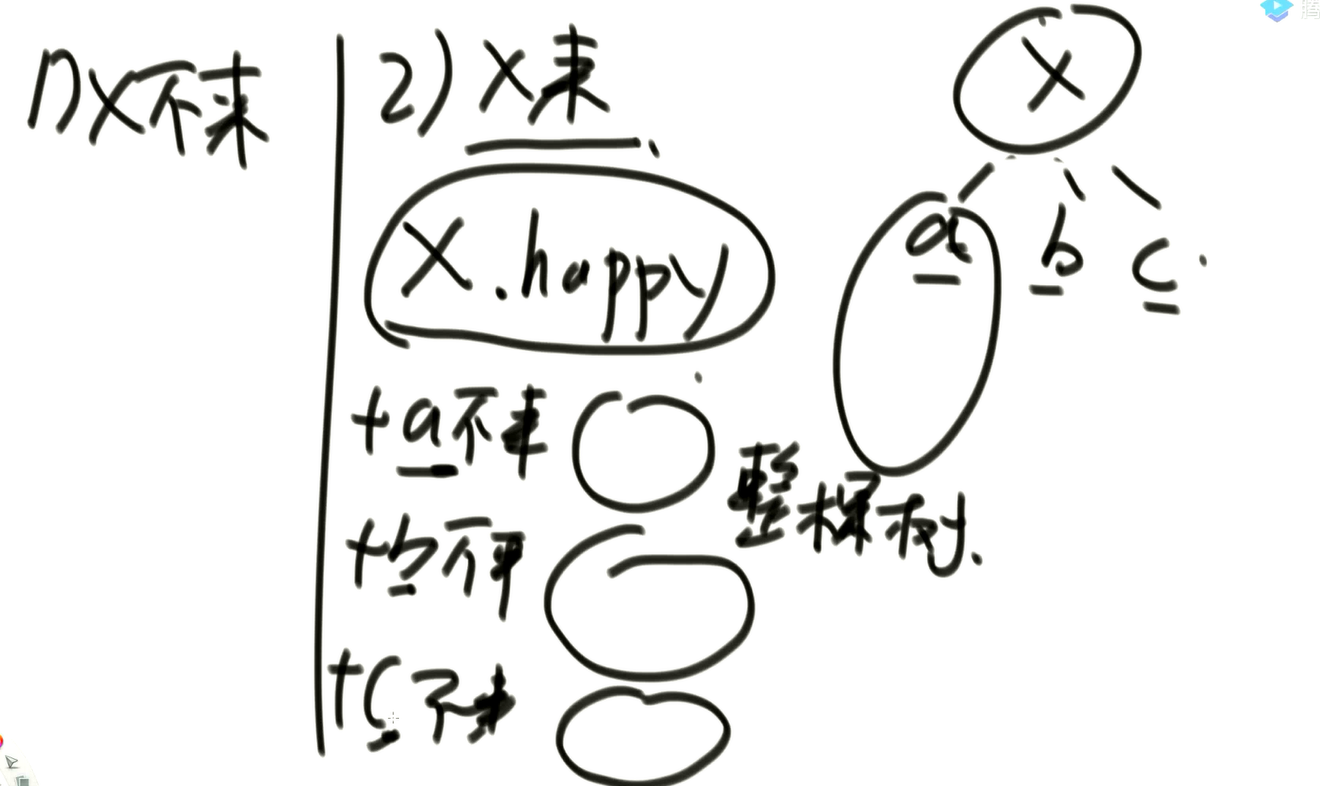 1)X不来
2)X来
X.happy
+a不来
+b不来
+c不来
X
a b c
整棵树.
腾